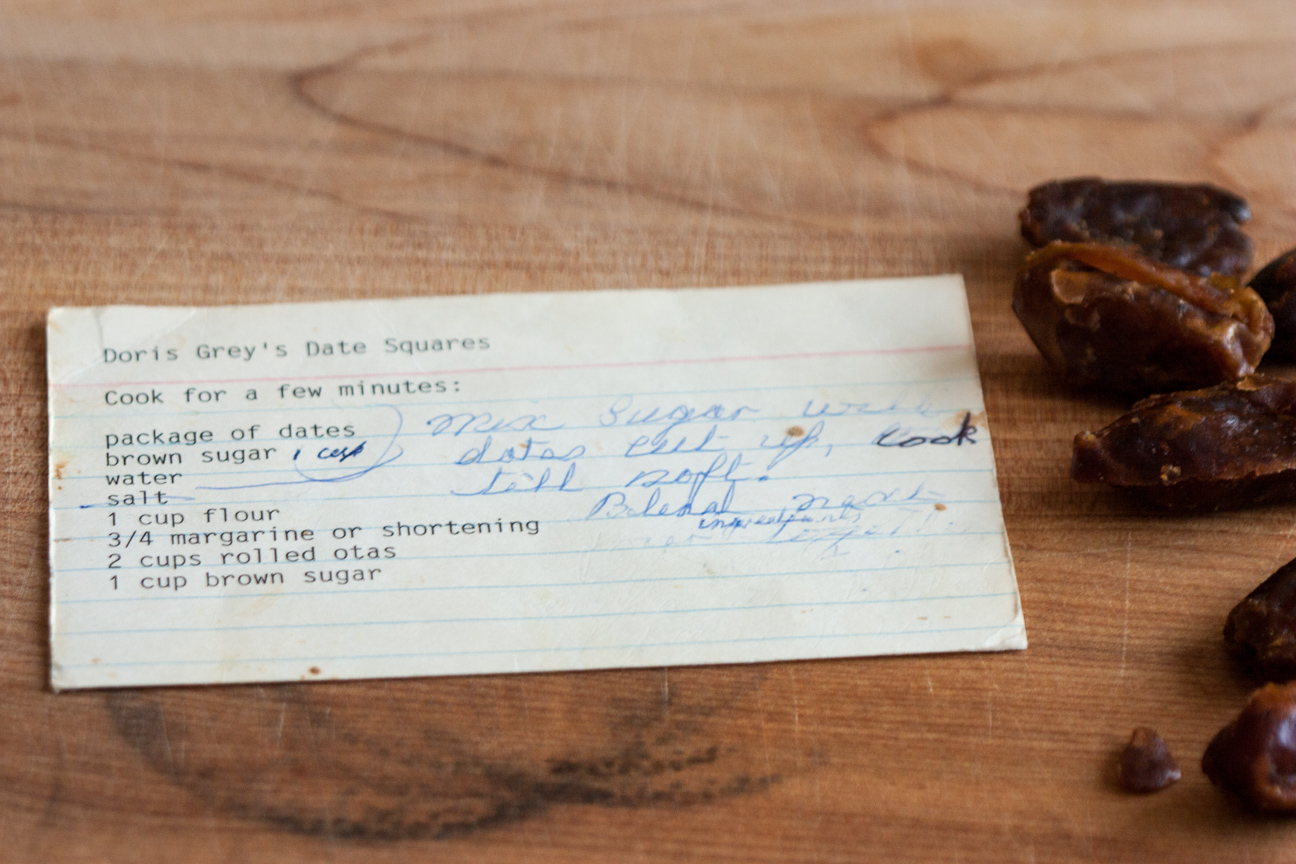 Doris Grey's Date Squares
Cook for a few minutes:
package of dates
brown sugar 1 cup
water
salt
1 cup flour
3/4 margarine or shortening
2 cups rolled otas
1 cup brown sugar
Mix Sugar with
dates cut up, cook
till soft.
Blend next
ingredients